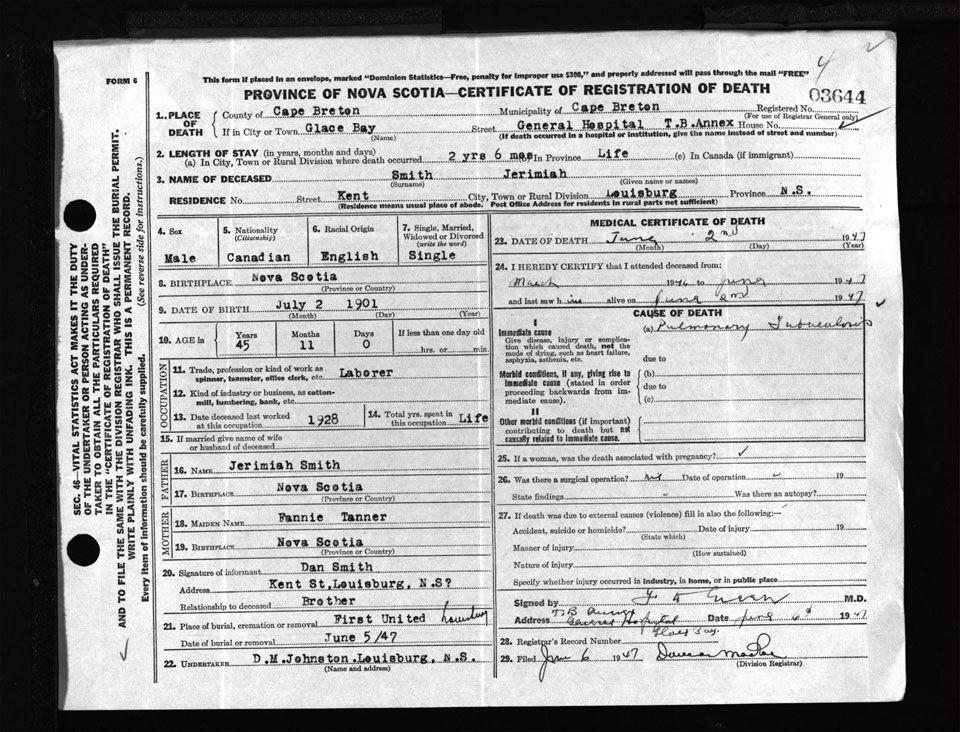 4
FORM 6
This form if placed in an envelope, marked "Dominion Statistics—Free, penalty for improper use $300," and properly addressed will pass through the mail "FREE"
PROVINCE OF NOVA SCOTIA—CERTIFICATE OF REGISTRATION OF DEATH
03644
1. PLACE OF DEATH
County of Cape Breton Municipality of Cape Breton Registered No.
(For use of Registrar General only)
If in City or Town Glace Bay Street General Hospital T.B.Annex House No.
(Name) (If death occurred in a hospital or institution, give the name instead of street and number)
2. LENGTH OF STAY (in years, months and days)
(a) In City, Town or Rural Division where death occurred 2 yrs 6 mos (b) In Province Life (c) In Canada (if immigrant)
3. NAME OF DECEASED Smith Jerimiah
(Surname) (Given name or names)
RESIDENCE No. Street Kent City, Town or Rural Division Louisburg Province N.S.
(Residence means usual place of abode. Post Office Address for residents in rural parts not sufficient)
4. Sex
Male
5. Nationality
(Citizenship)
Canadian
6. Racial Origin
English
7. Single, Married, Widowed or Divorced
(write the word)
Single
8. BIRTHPLACE Nova Scotia
(Province or Country)
9. DATE OF BIRTH July 2 1901
(Month) (Day) (Year)
10. AGE in Years Months Days If less than one day old
45 11 0 hrs. or min.
OCCUPATION
11. Trade, profession or kind of work as spinner, teamster, office clerk, etc. Laborer
12. Kind of industry or business, as cotton-mill, lumbering, bank, etc.
13. Date deceased last worked at this occupation 1928
14. Total yrs. spent in this occupation Life
15. If married give name of wife or husband of deceased
FATHER
16. NAME Jerimiah Smith
17. BIRTHPLACE Nova Scotia
(Province or Country)
MOTHER
18. MAIDEN NAME Fannie Tanner
19. BIRTHPLACE Nova Scotia
(Province or Country)
20. Signature of informant Dan Smith
Address Kent St.Louisburg, N.S?
Relationship to deceased Brother
21. Place of burial, cremation or removal First United Louisburg
Date of burial or removal June 5/47
22. UNDERTAKER D.M.Johnston.Louisburg, N.S.
(Name and address)
MEDICAL CERTIFICATE OF DEATH
23. DATE OF DEATH June 2nd 1947
(Month) (Day) (Year)
24. I HEREBY CERTIFY that I attended deceased from:
March 1946 to June 1947
and last saw him alive on June 2nd 1947
CAUSE OF DEATH
I
Immediate cause
Give disease, injury or complication which caused death, not the mode of dying, such as heart failure, asphyxia, asthenia, etc.
(a) Pulmonary Tuberculosis
due to
Morbid conditions, if any, giving rise to immediate cause (stated in order proceeding backwards from immediate cause).
(b)
due to
(c)
II
Other morbid conditions (if important) contributing to death but not causally related to immediate cause.
25. If a woman, was the death associated with pregnancy?
26. Was there a surgical operation? Date of operation 19
State findings Was there an autopsy?
27. If death was due to external causes (violence) fill in also the following:—
Accident, suicide or homicide? Date of injury 19
(State which)
Manner of injury
(How sustained)
Nature of injury
Specify whether injury occurred in industry, in home, or in public place
Signed by M.D.
Address T.B Annex General Hospital Glace Bay. Date June 6th 1947
28. Registrar's Record Number
29. Filed June 6 1947
(Division Registrar)
SEC. 46—VITAL STATISTICS ACT MAKES IT THE DUTY
OF THE UNDERTAKER OR PERSON ACTING AS UNDER-
TAKER TO OBTAIN ALL THE PARTICULARS REQUIRED
IN THE "CERTIFICATE OF REGISTRATION OF DEATH"
AND TO FILE THE SAME WITH THE DIVISION REGISTRAR WHO SHALL ISSUE THE BURIAL PERMIT.
WRITE PLAINLY WITH UNFADING INK. THIS IS A PERMANENT RECORD.
Every item of information should be carefully supplied. (See reverse side for instructions.)